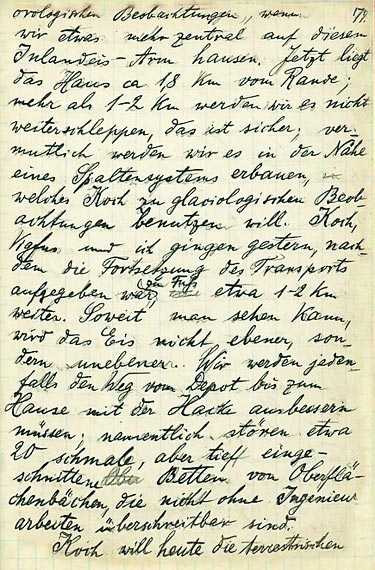 orologischen Beobachtungen, wenn 179
wir etwas mehr zentral auf diesem
Inlandeis-Arm hausen. Jetzt liegt
das Haus ca 1,8 Km vom Rande;
mehr als 1-2 Km werden wir es nicht
weiterschleppen, das ist sicher; ver-
mutlich werden wir es in der Nähe
eines Spaltensystems erbauen,
welches Koch zu glaciologischen Beob-
achtungen benutzen will. Koch,
Vigfus und ich gingen gestern, nach-
dem die Fortsetzung des Transports
aufgegeben war, zu Fuß etwa 1-2 Km
weiter. Soweit man sehen kann,
wird das Eis nicht ebener, son-
dern unebener. Wir werden jeden-
falls den Weg vom Depot bis zum
Hause mit der Hacke ausbessern
müssen; namentlich stören etwa
20 schmale, aber tief einge-
schnittene Betten von Oberflä-
chenbächen, die nicht ohne Ingenieur
arbeiten überschreitbar sind.
Koch will heute die terrestrischen